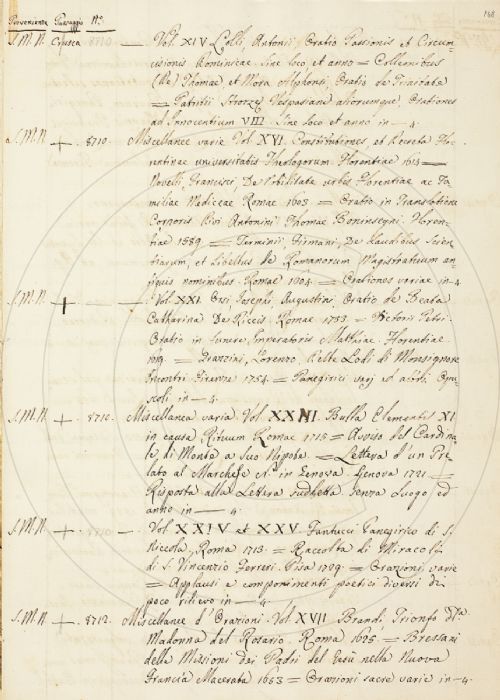 Provenienza Passaggio N.º
168
S.M.N. Crusca 8710 — Vol. XIV Lolli, Antonii, Oratio Passionis et Circum-
cisionis Dominicae. Sine loco et anno = Collenutes
(De) Thomae et Mora Alphonsi, Oratio de Trinitate
= Patritii Strozzi Vespasiani aliorumque, Orationes
ad Innocentium VIII. Sine Loco et anno in — 4.
a S.M.N. + 8710. Miscellanee varie Vol. XVI. Constitutiones, et Decreta Flo-
rentinae universitatis Theologorum. Florentiae 1614 —
Novelli, Francisci, De Nobilitate urbis Florentiae ac Fa-
miliae Mediceae Romae 1603 = Oratio in Translatione
Corporis Divi Antonini Thomae Boninsegni. Floren-
tiae 1589. = Terminii, Firmani, De Laudibus Scien-
tiarum, et Libellus de Romanorum Magistratuum an-
tiquis nominibus. Romae 1604. = Orationes variae in-4.
S.M.N. + — Vol. XXI. Orsi Joseph, Augustini, Oratio de Beata
Catharina De Riccis. Romae 1733 = Victorii Petri
Oratio in funere Imperatoris Matthiae. Florentiae
1619. = Grazzini, Lorenzo, Delle Lodi di Monsignore
Incontri Firenze 1754. = Panegirici varj ed altri Opu-
scoli in — 4.
S.M.N. + 8710. Miscellanea varia Vol. XXIII. Bulla Clementis XI
in causa Rituum Romae 1715 = Avviso del Cardina-
le di Monte a Suo Nepote. = Lettera d'un Pre-
lato al Marchese N. in Genova. Genova 1721 =
Risposta alla Lettera suddetta. Senza Luogo, ed
anno in — 4.
S.M.N. + 8710 — Vol. XXIV et XXV. Fantucci Panegirico di S.
Niccola, Roma 1713. = Raccolta di Miracoli
di S. Vincenzio Ferreri. Pisa 1729. = Orazioni, varie
= Applausi e componimenti poetici diversi di
poco rilievo in — 4.
S.M.N. + 8712. Miscellanee d'Orazioni. Vol. XVII. Brandi, Trionfo d.la
Madonna del Rosario. Roma 1625. = Bressani
della Missioni dai Padri del Gesù nella Nuova
Francia Macerata 1653 = Orazioni sacre varie in-4.